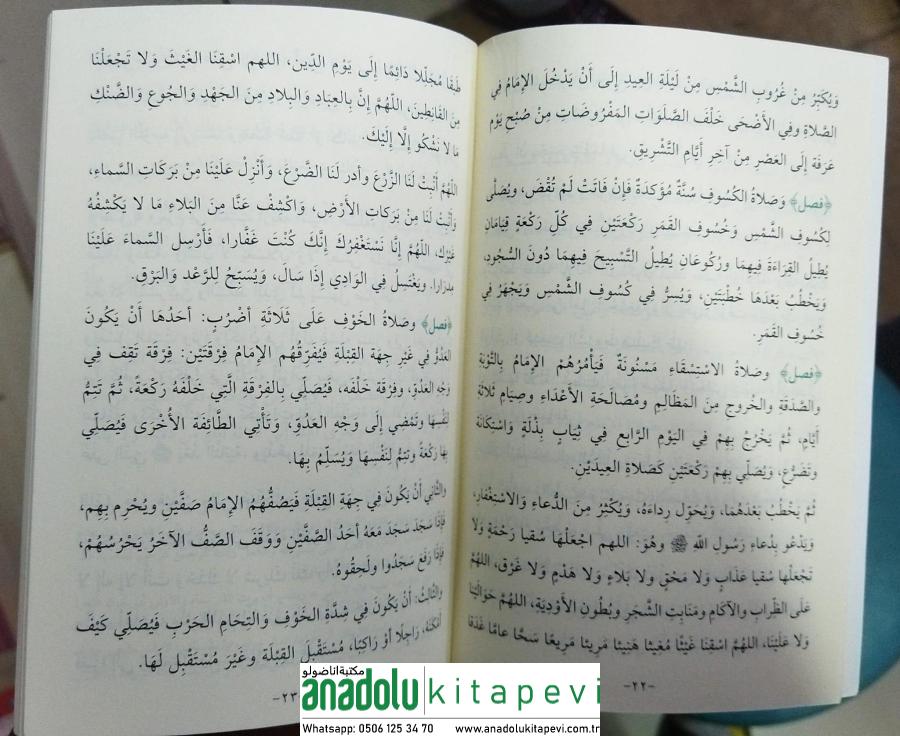 وَيُكَبِّرُ مِنْ غُرُوبِ الشَّمْسِ مِنْ لَيْلَةِ العِيدِ إِلَى أَنْ يَدْخُلَ الإِمَامُ فِي
الصَّلَاةِ وَفِي الأَضْحَى خَلْفَ الصَّلَوَاتِ المَفْرُوضَاتِ مِنْ صُبْحِ يَوْمِ
عَرَفَةَ إِلَى العَصْرِ مِنْ آخِرِ أَيَّامِ التَّشْرِيقِ.
﴿فصل﴾ وَصَلَاةُ الكُسُوفِ سُنَّةٌ مُؤَكَّدَةٌ فَإِنْ فَاتَتْ لَمْ تُقْضَ، وَيُصَلَّى
لِكُسُوفِ الشَّمْسِ وَخُسُوفِ القَمَرِ رَكْعَتَيْنِ فِي كُلِّ رَكْعَةٍ قِيَامَانِ
يُطِيلُ القِرَاءَةَ فِيهِمَا وَرُكُوعَانِ يُطِيلُ التَّسْبِيحَ فِيهِمَا دُونَ السُّجُودِ،
وَيَخْطُبُ بَعْدَهَا خُطْبَتَيْنِ، وَيُسِرُّ فِي كُسُوفِ الشَّمْسِ وَيَجْهَرُ فِي
خُسُوفِ القَمَرِ.
﴿فصل﴾ وَصَلَاةُ الاسْتِسْقَاءِ مَسْنُونَةٌ فَيَأْمُرُهُمْ الإِمَامُ بِالتَّوْبَةِ
وَالصَّدَقَةِ وَالخُرُوجِ مِنَ المَظَالِمِ وَمُصَالَحَةِ الأَعْدَاءِ وَصِيَامِ ثَلَاثَةِ
أَيَّامٍ، ثُمَّ يَخْرُجُ بِهِمْ فِي اليَوْمِ الرَّابِعِ فِي ثِيَابِ بِذْلَةٍ وَاسْتِكَانَةٍ
وَتَضَرُّعٍ، وَيُصَلِّي بِهِمْ رَكْعَتَيْنِ كَصَلَاةِ العِيدَيْنِ.
ثُمَّ يَخْطُبُ بَعْدَهُمَا، وَيُحَوِّل رِدَاءَهُ، وَيُكْثِرُ مِنَ الدُّعَاءِ وَالاسْتِغْفَارِ،
وَيَدْعُو بِدُعَاءِ رَسُولِ اللهِ ﷺ وَهُوَ: اللهم اجْعَلْهَا سُقيا رَحْمَةٍ وَلَا
تَجْعَلْهَا سُقيا عَذَابٍ وَلَا مَحْقٍ وَلَا بَلَاءٍ وَلَا هَدْمٍ وَلَا غَرْقٍ، اللهُمَّ
عَلَى الظِّرابِ والآكَامِ وَمَنَابِتِ الشَّجَرِ وَبُطُونِ الأَوْدِيَةِ، اللهُمَّ حَوَالَيْنَا
وَلَا عَلَيْنَا، اللهُمَّ اسْقِنَا غَيْثًا مُغِيثًا هَنِيئًا مَرِيئًا مَرِيعًا سَحًّا عَامًّا غَدَقًا
-٢٢-
طَبَقًا مُجَلِّلًا دَائِمًا إِلَى يَوْمِ الدِّينِ، اللهم اسْقِنَا الغَيْثَ وَلَا تَجْعَلْنَا
مِنَ القَانِطِينَ، اللَّهُمَّ إِنَّ بِالعِبَادِ وَالبِلَادِ مِنَ الجَهْدِ وَالجُوعِ وَالضَّنْكِ
مَا لَا نَشْكُو إِلَّا إِلَيْكَ.
اللهُمَّ أَنْبِتْ لَنَا الزَّرْعَ وَأَدِر لَنَا الضَّرْعَ، وَأَنْزِلْ عَلَيْنَا مِنْ بَرَكَاتِ السَّمَاءِ،
وَأَنْبِتْ لَنَا مِنْ بَرَكَاتِ الأَرْضِ، وَاكْشِفْ عَنَّا مِنَ البَلَاءِ مَا لَا يَكْشِفُهُ
غَيْرُكَ، اللهُمَّ إِنَّا نَسْتَغْفِرُكَ إِنَّكَ كُنْتَ غَفَّارا، فَأَرْسِلِ السَّمَاءَ عَلَيْنَا
مِدرارا. وَيَغْتَسِلُ فِي الوَادِي إِذَا سَالَ، وَيُسَبِّحُ لِلرَّعْدِ وَالبَرْقِ.
﴿فصل﴾ وَصَلَاةُ الخَوْفِ عَلَى ثَلَاثَةِ أَضْرُبٍ: أَحَدُهَا أَنْ يَكُونَ
العَدُوُّ فِي غَيْرِ جِهَةِ القِبْلَةِ فَيُفَرِّقُهُم الإِمَامُ فِرْقَتَيْنِ: فِرْقَة تَقِف فِي
وَجْهِ العَدُوِّ، وفِرْقَة خَلْفَه، فَيُصَلِّي بِالفِرْقَةِ الَّتِي خَلْفَهُ رَكْعَةً، ثُمَّ تُتِمُّ
لِنَفْسِهَا وَتَمْضِي إِلَى وَجْهِ العَدُوِّ، وَتَأْتِي الطَّائِفَة الأُخْرَى فَيُصَلِّي
بِهَا رَكْعَةً وَتُتِمُّ لِنَفْسِهَا وَيُسَلِّمُ بِهَا.
وَالثَّانِي أَنْ يَكُونَ فِي جِهَةِ القِبْلَةِ فَيَصُفُّهُمُ الإِمَامُ صَفَّيْنِ وَيُحْرِم بِهِم،
فَإِذَا سَجَدَ سَجَدَ مَعَهُ أَحَدُ الصَّفَّيْنِ وَوَقَفَ الصَّفُّ الآخَرُ يَحْرُسُهُمْ،
فَإِذَا رَفَعَ سَجَدُوا وَلَحِقُوهُ.
وَالثَّالِثُ: أَنْ يَكُونَ فِي شِدَّةِ الخَوْفِ وَالتِحَامِ الحَرْبِ فَيُصَلِّي كَيْفَ
أَمْكَنَهُ، رَاجِلًا أَوْ رَاكِبًا، مُسْتَقْبِلَ القِبْلَةِ وَغَيْرَ مُسْتَقْبِلٍ لَهَا.
-٢٣
مكتبة اناضولو
anadolu kitapevi
Whatsapp: 0506 125 34 70 www.anadolukitapevi.com.tr